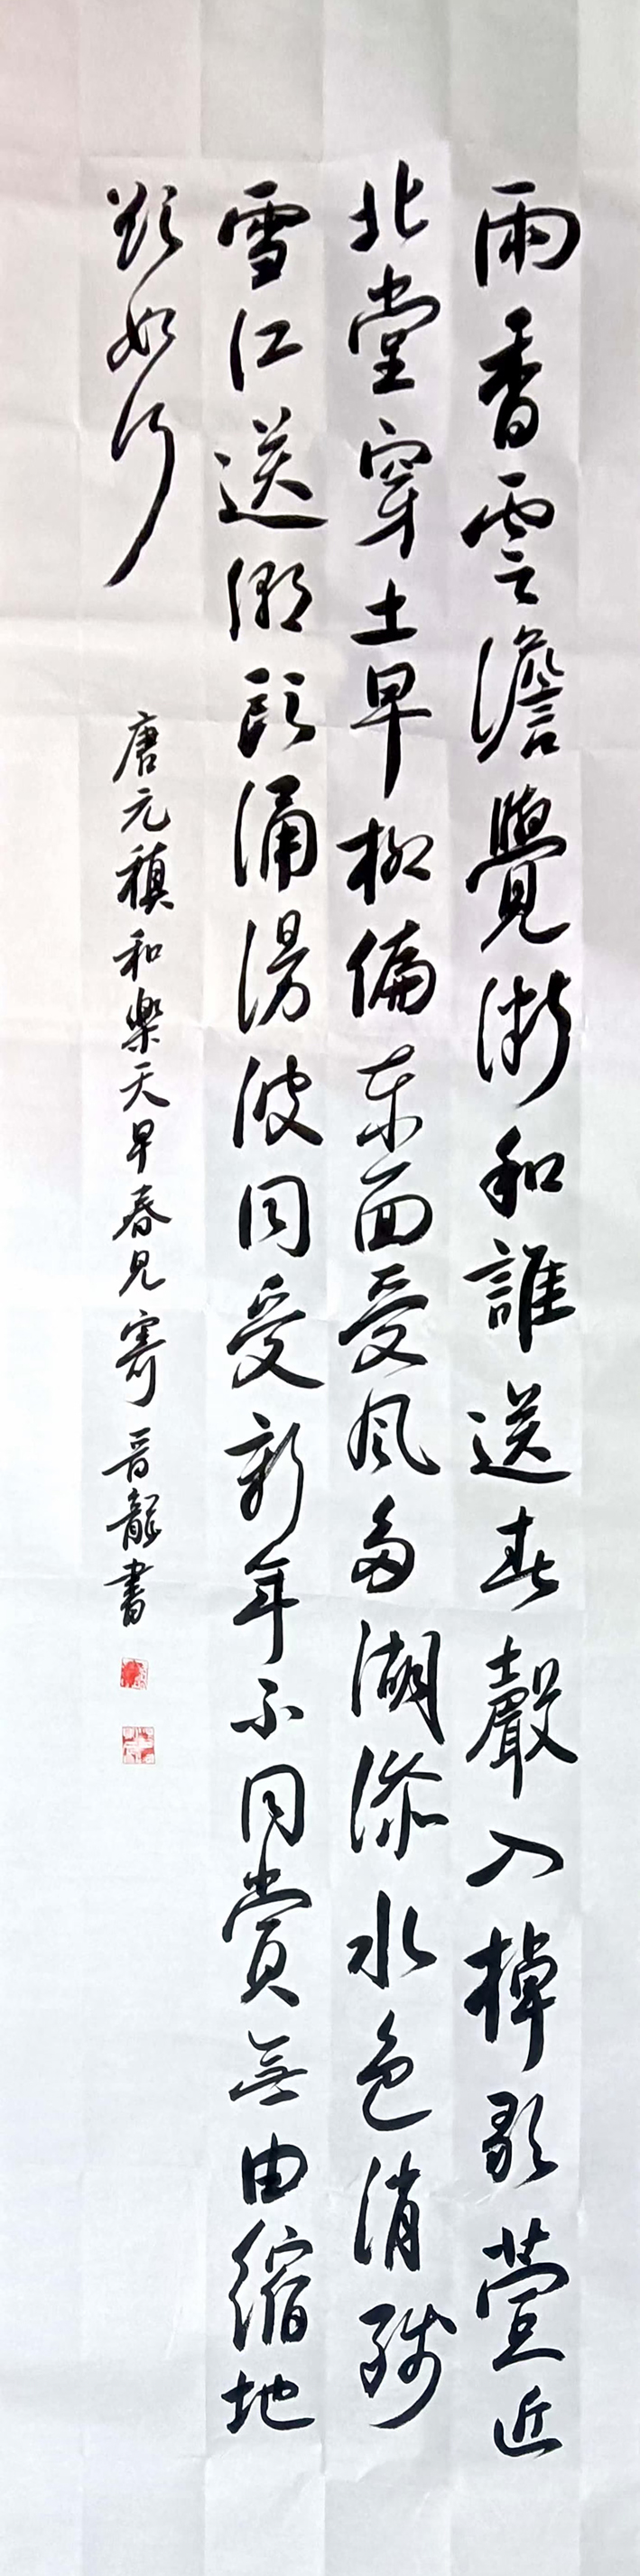 雨香雲澹覺微和誰送春聲入棹歌萱近
北堂穿土早柳偏東面受風多湖添水色消殘
雪江送潮頭涌漫波同受新年不同賞無由縮地
欲如何
唐元稹和樂天早春見寄 晋龍書